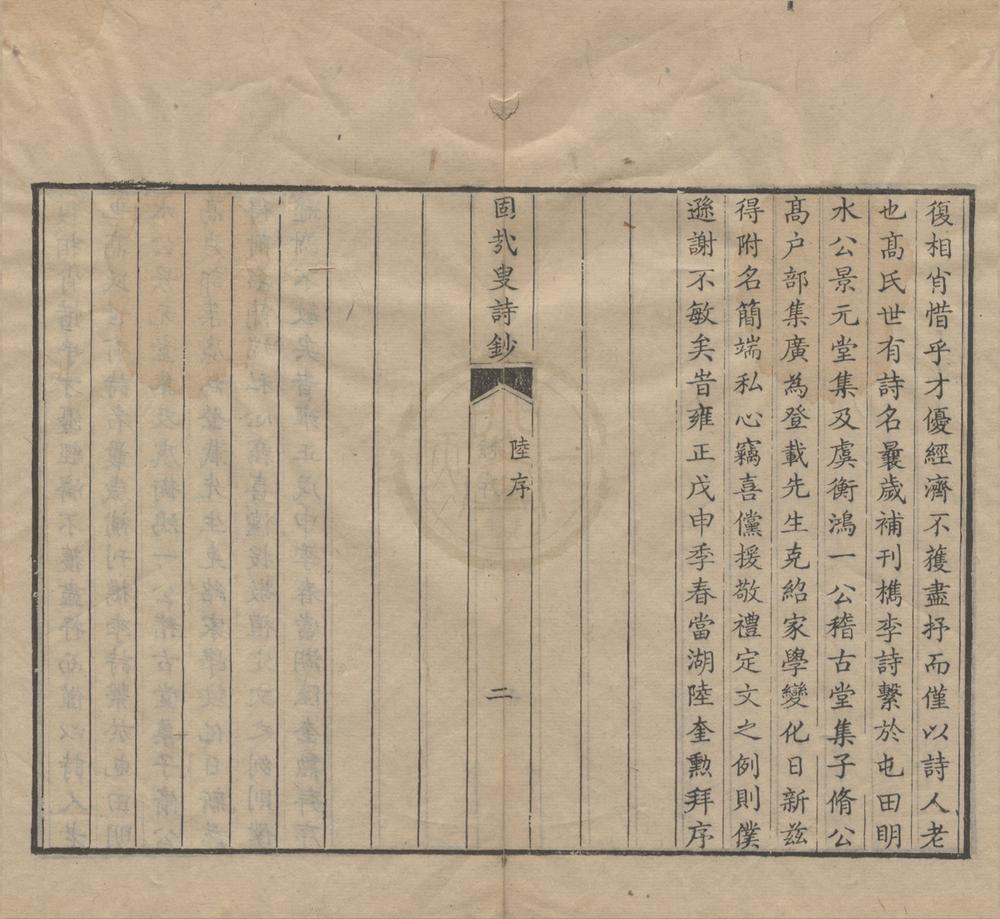 復相肖惜乎才優經濟不獲盡抒而僅以詩人老
也髙氏世有詩名曩歲補刊檇李詩繫於屯田明
水公景元堂集及虞衡鴻一公稽古堂集子脩公
髙户部集廣為登載先生克紹家學變化日新兹
得附名簡端私心竊喜儻援敬禮定文之例則僕
遜謝不敏矣旹雍正戊申季春當湖陸奎勲拜序
固哉叟詩鈔
陸序
二